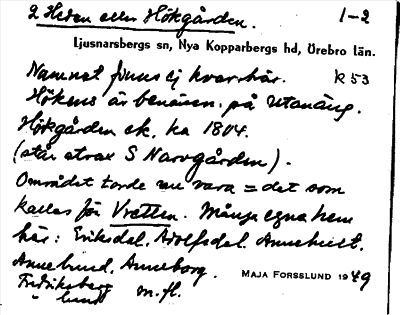 2 Heden eller Hökgården. 1-2
Ljusnarsbergs sn, Nya Kopparbergs hd, Örebro län.
Namnet finns ej kvar här. R 53
Hökens är benämn. på utanäng.
Hökgården ek. ka 1804.
(står strax S Narvgården).
Området torde nu vara = det som
kallas för Vretten. Många egna hem
här: Eriksdal. Adolfsdal. Annehult.
Annelund. Anneborg.
Fredriksberg
" lund m.fl.
MAJA FORSSLUND 1949